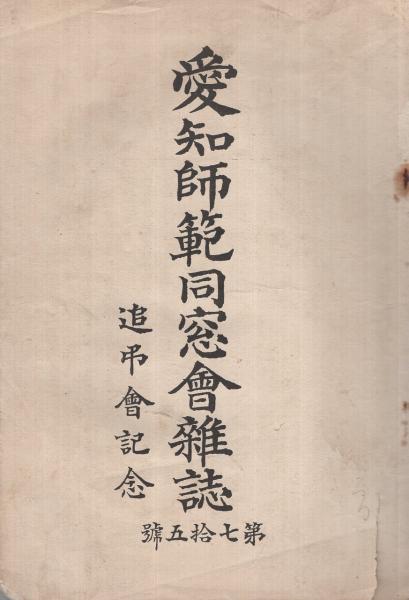 愛知師範同窓會雜誌
追弔會記念
第七拾五號